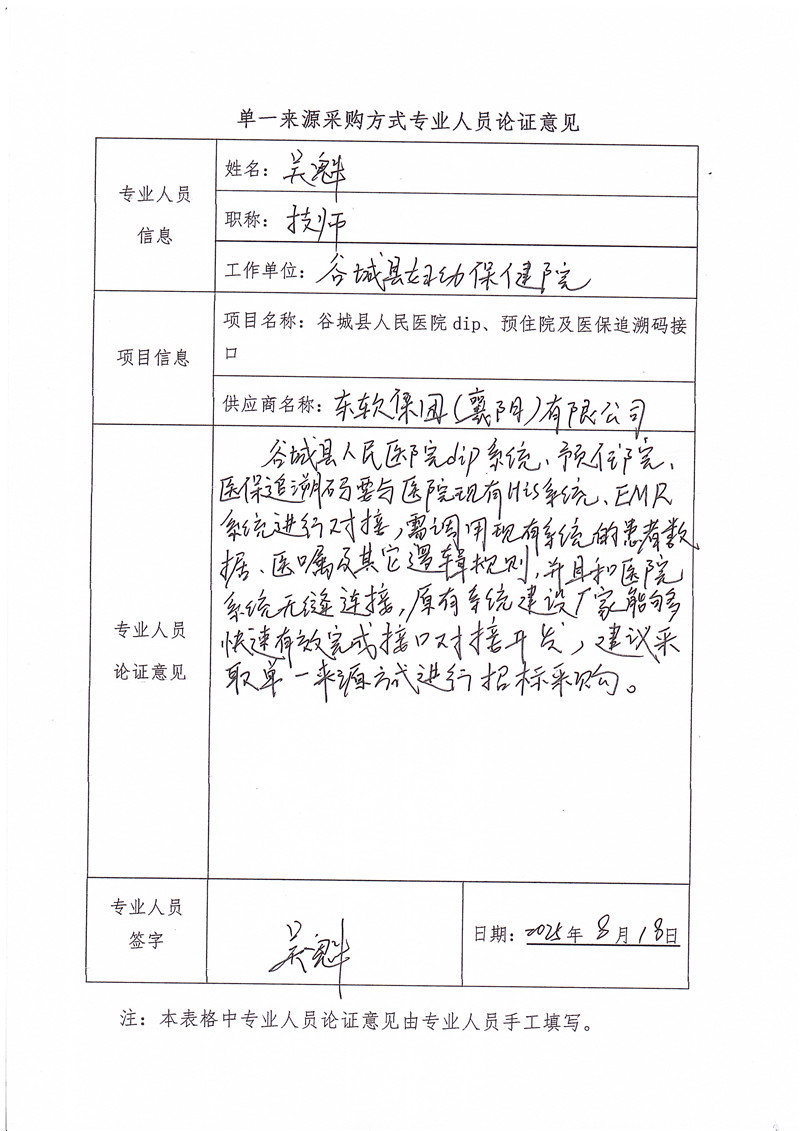 单一来源采购方式专业人员论证意见
专业人员
信息
姓名：吴魁
职称：技师
工作单位：谷城县妇幼保健院
项目信息
项目名称：谷城县人民医院dip、预住院及医保追溯码接
口
供应商名称：东软集团(襄阳)有限公司
专业人员
论证意见
谷城县人民医院dip系统、预住院、
医保追溯码要与医院现有His系统、EMR
系统进行对接，需调用现有系统的患者数
据、医嘱及其它逻辑规则，并且和医院
系统无缝连接，原有系统建设厂家能够
快速有效完成接口对接开发，建议采
取单一来源方式进行招标采购。
专业人员
签字
吴魁
日期：2025年8月18日
注：本表格中专业人员论证意见由专业人员手工填写。